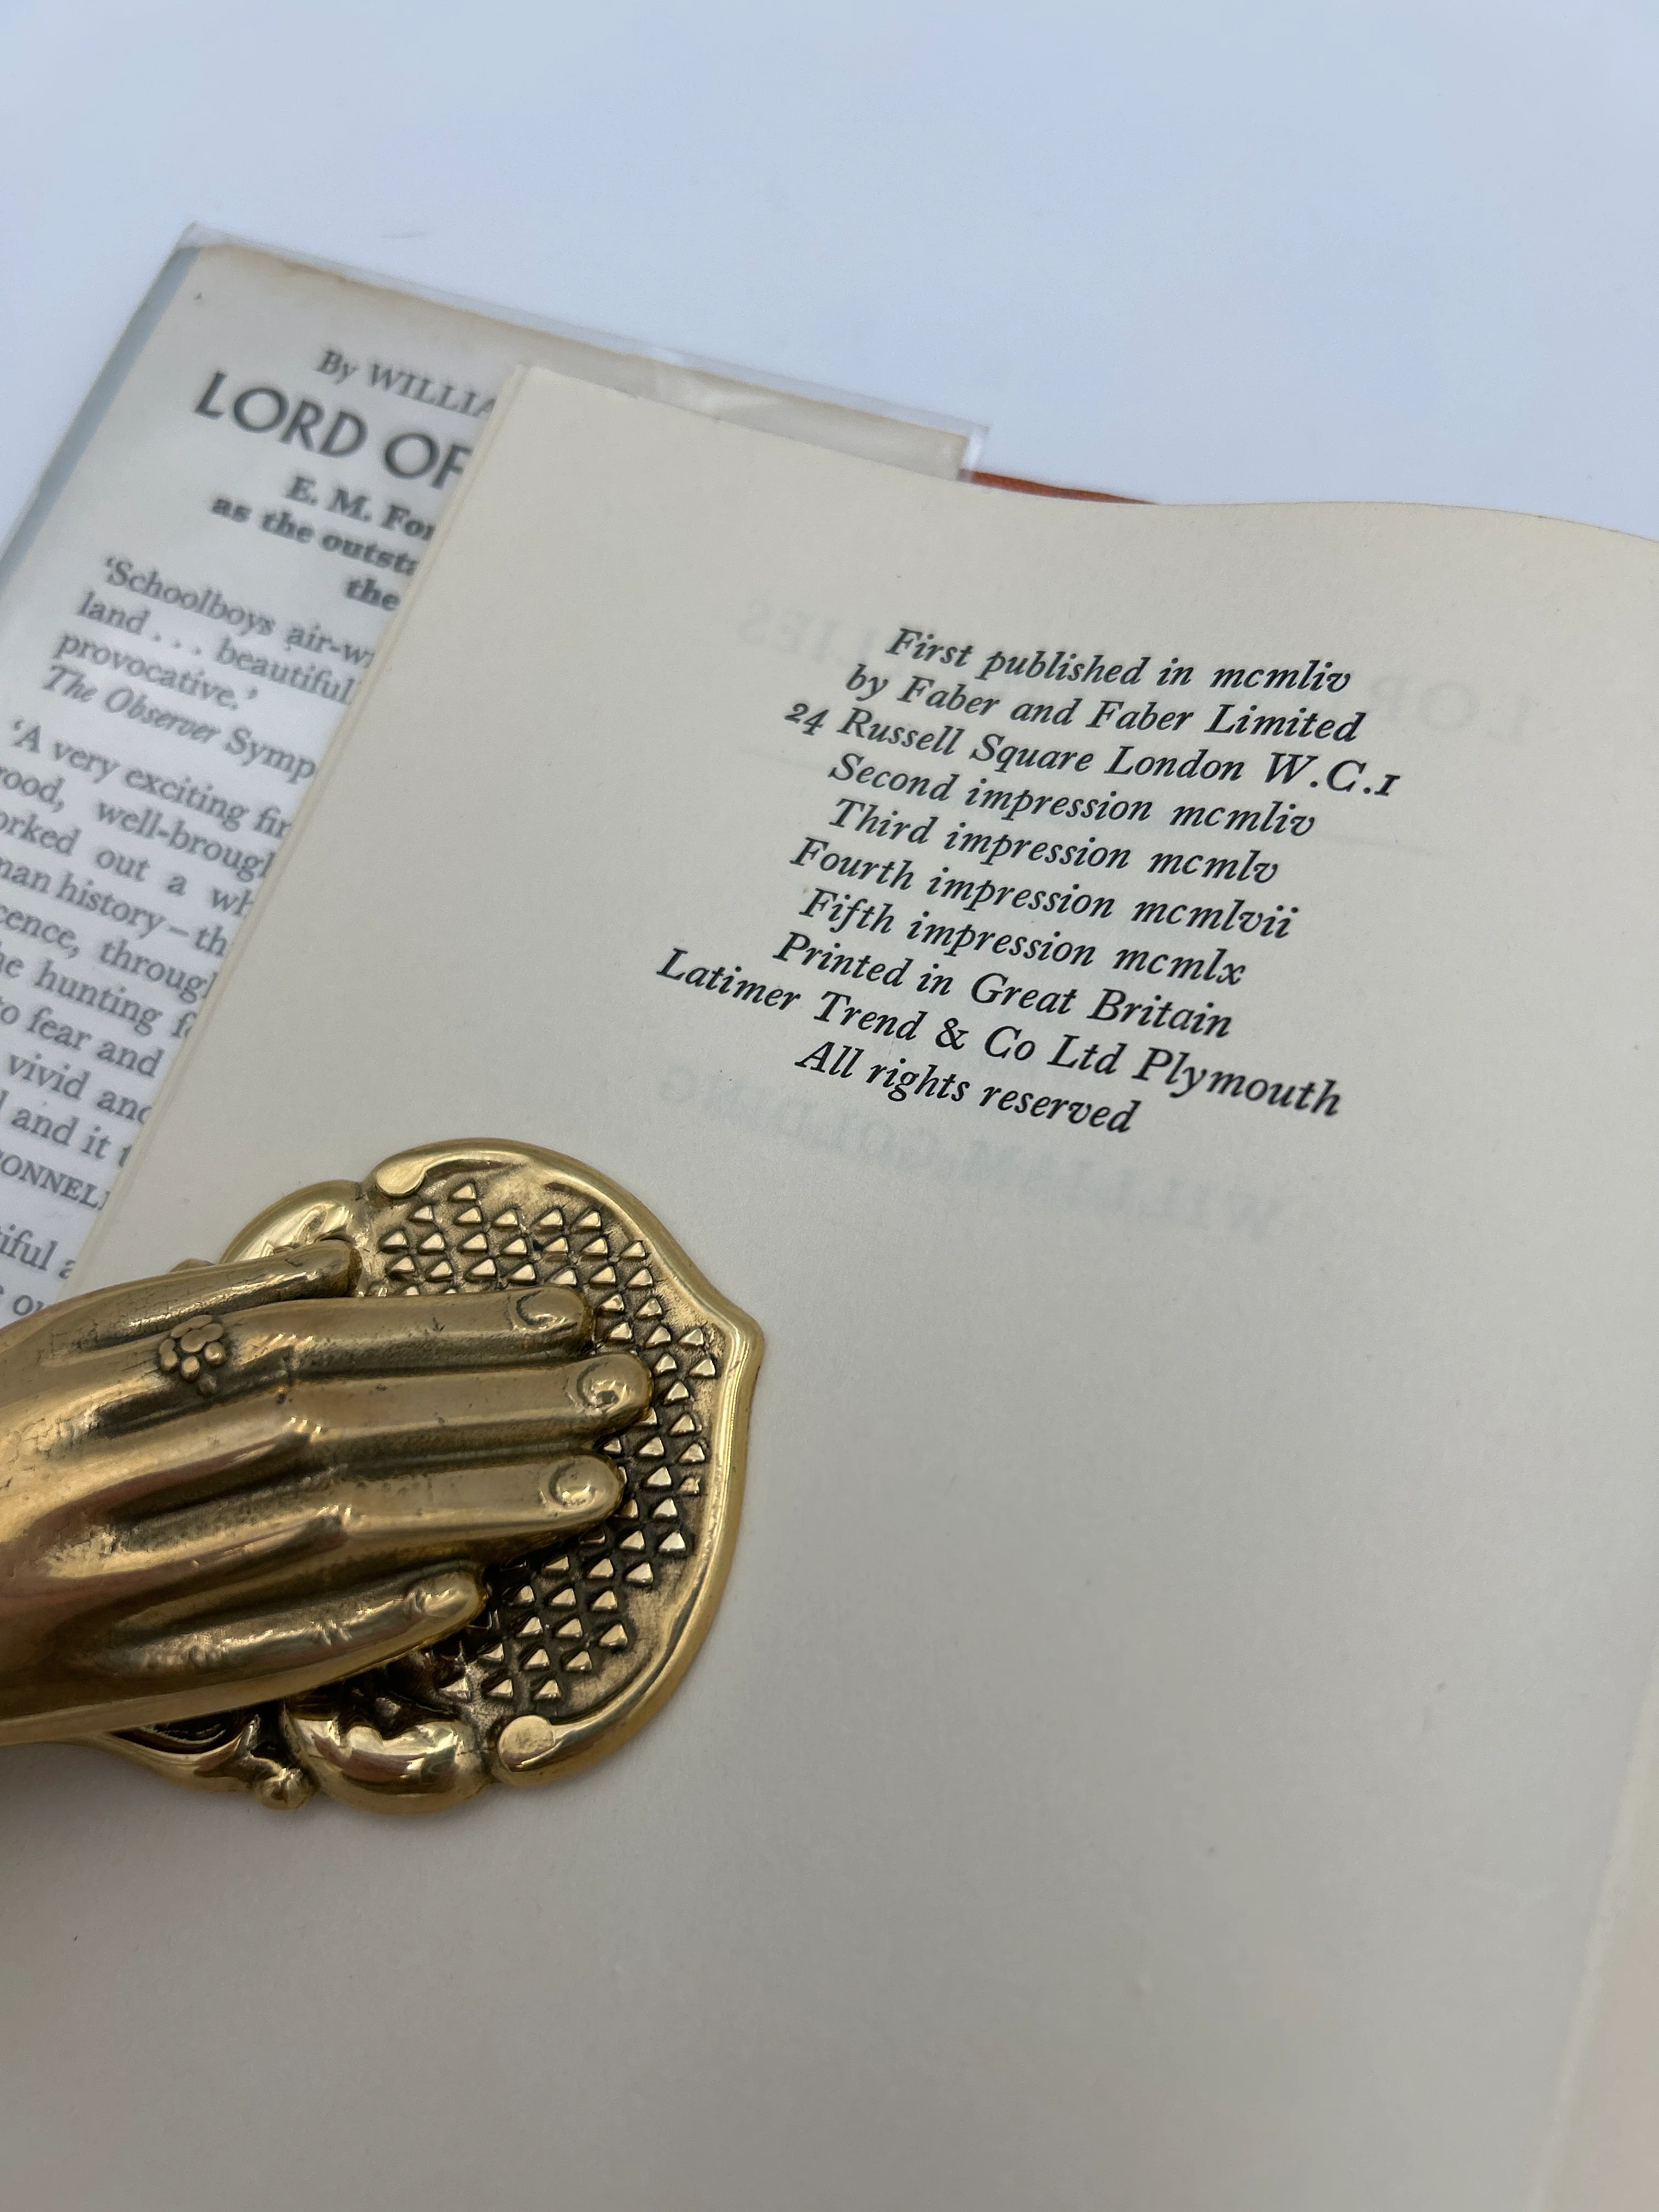 By WILLIA
LORD OF
E. M. For
as the outsta
the
'Schoolboys air-w
land . . . beautiful
provocative.'
The Observer Symp
'A very exciting fir
ood, well-brough
orked out a wh
man history – th
cence, through
he hunting fo
to fear and
vivid and
and it t
ONNEL
iful a
First published in mcmliv
by Faber and Faber Limited
24 Russell Square London W.C.1
Second impression mcmliv
Third impression mcmlv
Fourth impression mcmlvii
Fifth impression mcmlx
Printed in Great Britain
Latimer Trend & Co Ltd Plymouth
All rights reserved